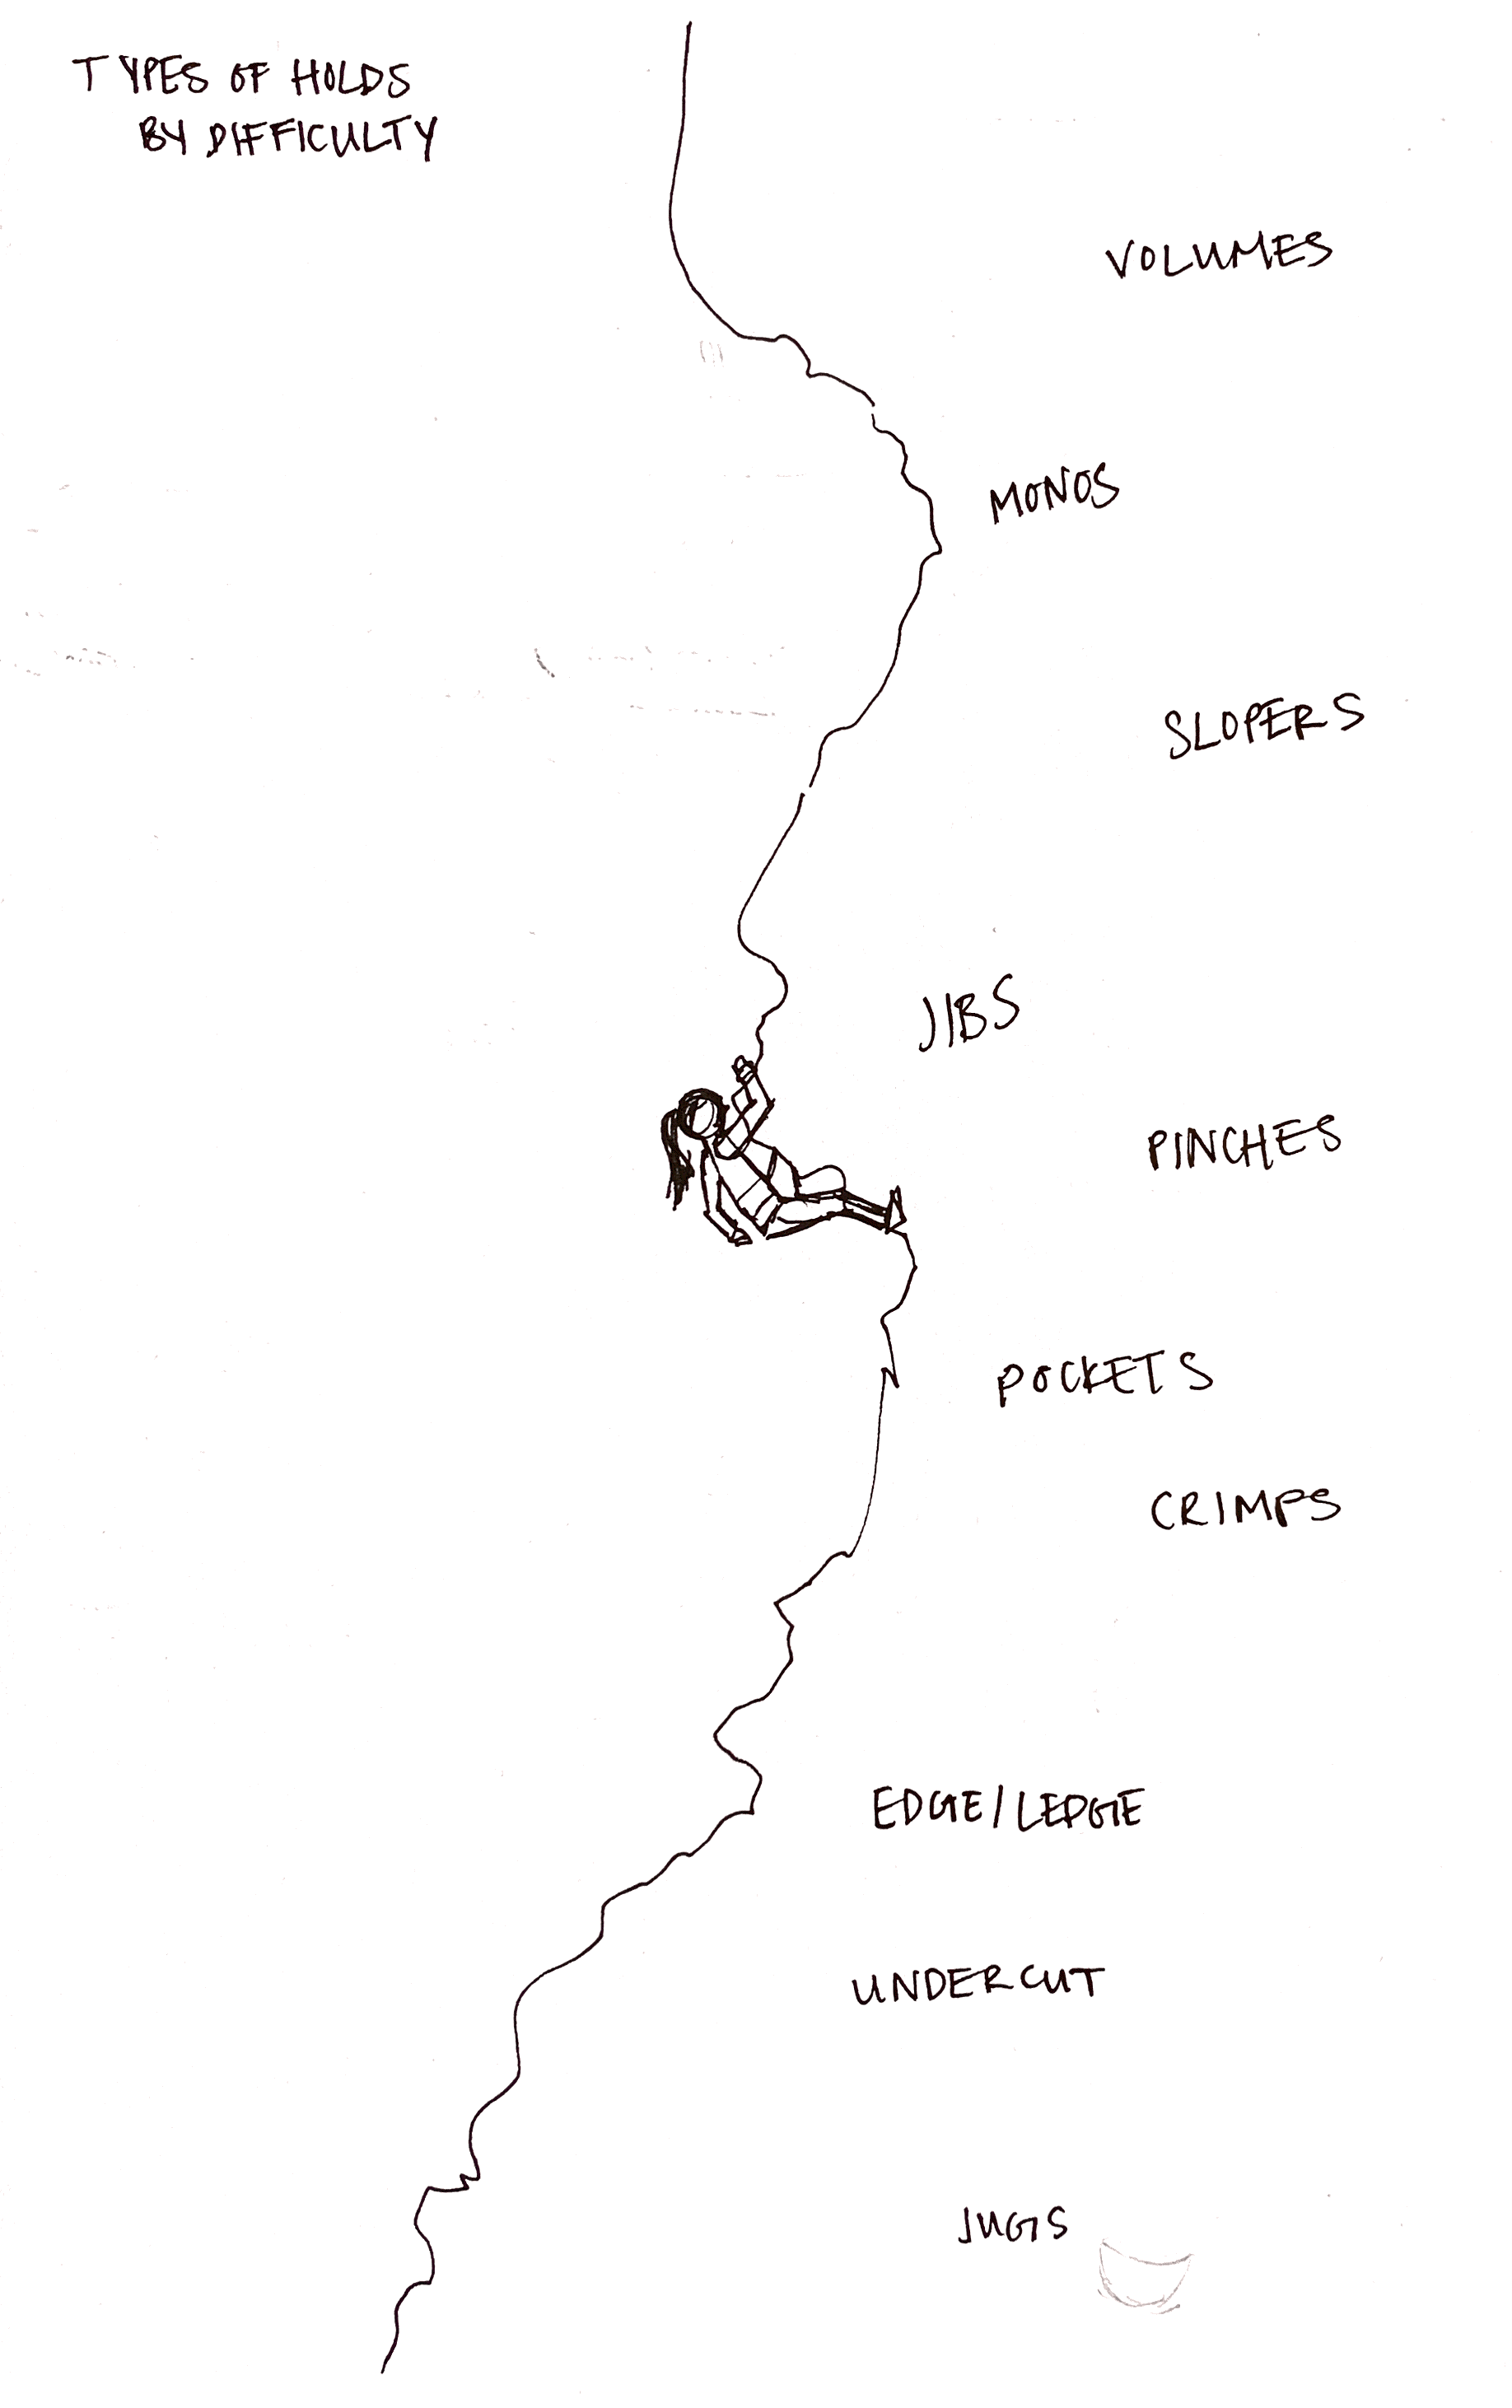 TYPES OF HOLDS
BY DIFFICULTY
VOLUMES
MONOS
SLOPERS
JIBS
PINCHES
POCKETS
CRIMPS
EDGE/LEDGE
UNDERCUT
JUGS